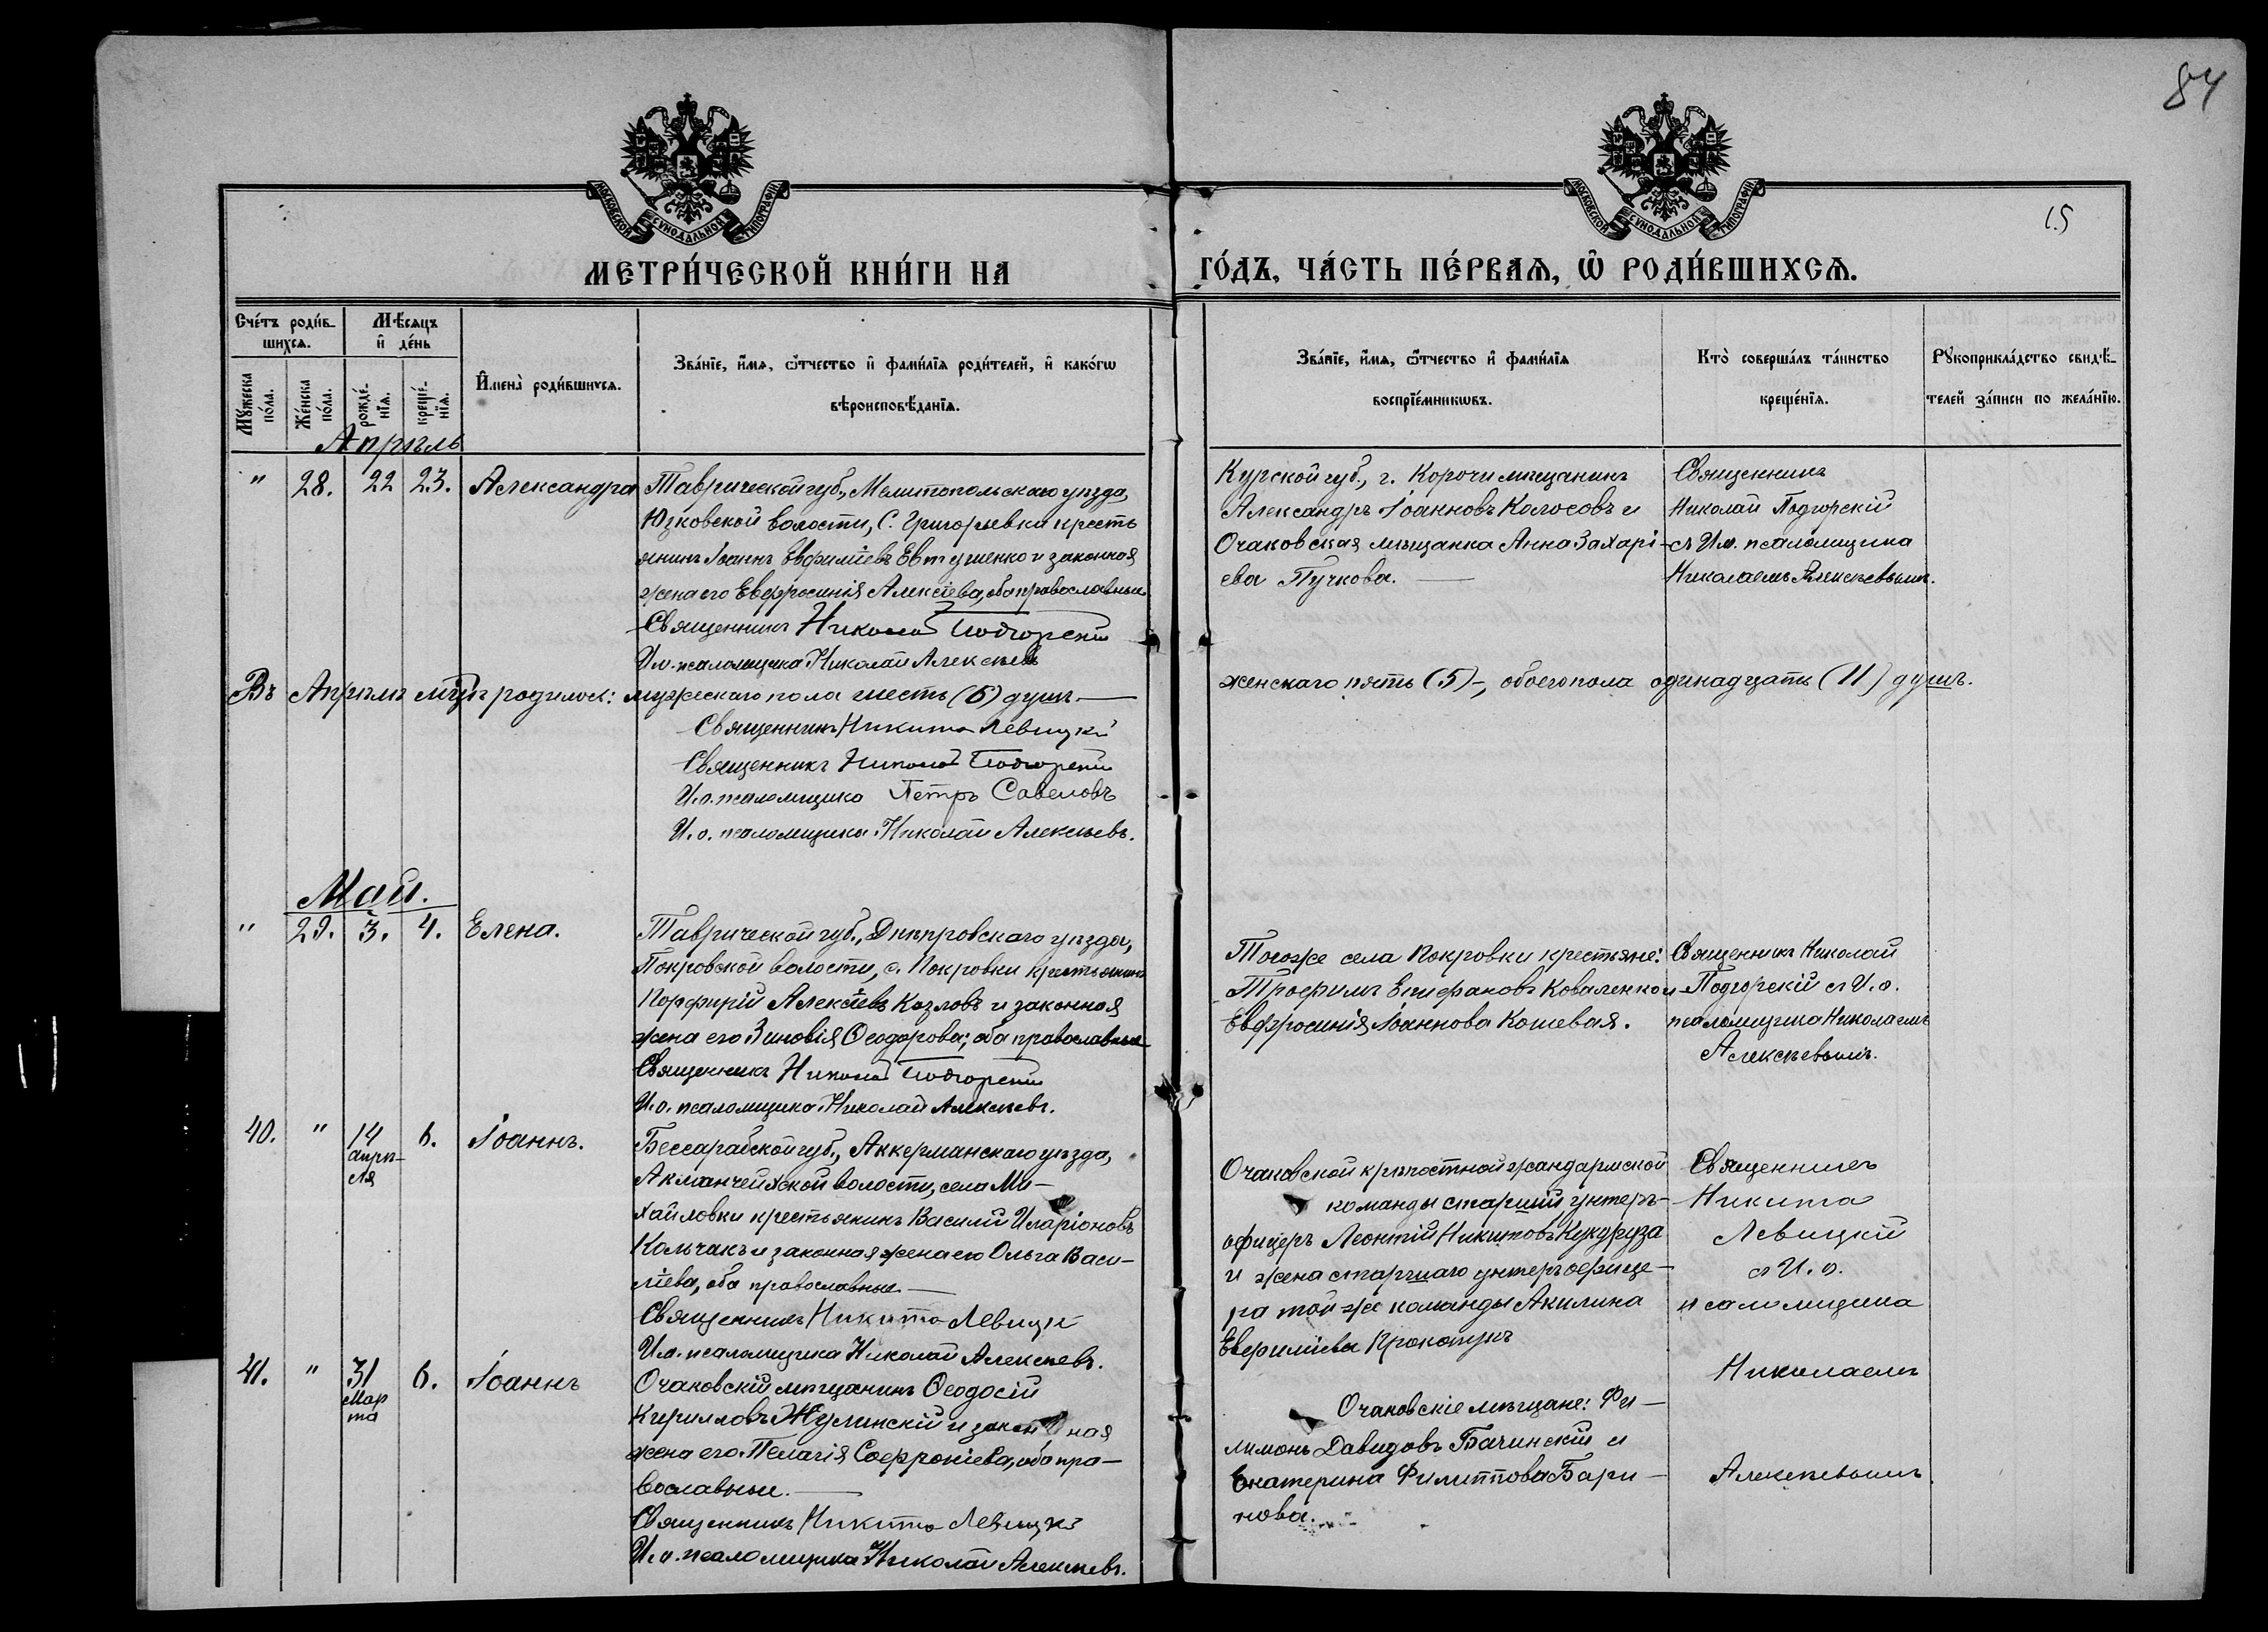 84
15
МОСКОВСКОЙ СУНОДАЛЬНОЙ ТИПОГРАФІИ
МОСКОВСКОЙ СУНОДАЛЬНОЙ ТИПОГРАФІИ
МЕТРИ́ЧЕСКОЙ КНИ́ГИ НА
ГО́ДЪ, ЧА́СТЬ ПЕ́РВАѦ, Ѡ РОДИ́ВШИХСѦ.
Сче́тъ роди́в-
шихсѧ.
Мѣ́сѧцъ
и де́нь
Мꙋ́жеска по́ла.
Же́нска по́ла.
рожде́-нїѧ.
креще́-нїѧ.
Имена̀ роди́вшихсѧ.
Зва́нїе, и́мѧ, ѻ́тчество и фами́лїѧ роди́телей, и како́гѡ
вѣроисповѣ́данїѧ.
Зва́нїе, и́мѧ, ѻ́тчество и фами́лїѧ
воспрїе́мникѡвъ.
Кто̀ соверша́лъ та́инство
креще́нїѧ.
Рꙋкоприкла́дство свидѣ́-
телей за́писи по жела́нїю.
Апрѣль
" 28. 22 23. Александра
Таврической губ., Мелитопольскаго уѣзда,
Юзковской волости, С. Григорьевки кресть
янинъ Іоаннъ Евфиміевъ Евтушенко и законная
жена его Евфросинія Алексіева, оба православные
Священникъ Николай Подгорскій
И.о. псаломщика Николай Алексѣевъ
Курской губ., г. Корочи мѣщанинъ
Александръ Іоанновъ Колосовъ и
Очаковская мѣщанка Анна Захарі-
ева Пучкова.
Священникъ
Николай Подгорскій
съ И.о. псаломщика
Николаемъ Алексѣевымъ.
Въ Апрѣлѣ мцѣ родилось: мужескаго пола шесть (6) душъ
женскаго пять (5)-, обоего пола одинадцать (11) душъ.
Священникъ Никита Левицкій
Священникъ Николай Подгорскій
И.о. псаломщика Петръ Савеловъ
И.о. псаломщика Николай Алексѣевъ.
Май.
" 29. 3. 4. Елена.
Таврической губ., Днѣпровскаго уѣзда,
Покровской волости, с. Покровки крестьянинъ
Порфирій Алексіевъ Козловъ и законная
жена его Зиновія Ѳеодорова; оба православные
Священникъ Николай Подгорскій
И.о. псаломщика Николай Алексѣевъ.
Тогоже села Покровки крестьяне:
Трофимъ Епифановъ Коваленко и
Евфросинія Іоаннова Кошевая.
Священникъ Николай
Подгорскій съ И.о.
псаломщика Николаемъ
Алексѣевымъ.
40. " 14 апрѣ-ля 6. Іоаннъ.
Бессарабской губ., Аккерманскаго уѣзда,
Акманчейской волости, села Ми-
хайловки крестьянинъ Василій Иларіоновъ
Кольчакъ и законная жена его Ольга Васи-
ліева, оба православные
Священникъ Никита Левицкій
И.о. псаломщика Николай Алексѣевъ.
Очаковской крѣпостной жандармской
команды старшій унтеръ-
офицеръ Леонтій Никитовъ Кукуруза
и жена старшаго унтеръ офице-
ра той-же команды Акилина
Евфиміева Прокопукъ
Священникъ
Никита
Левицкій
съ И.о.
псаломщика
Николаемъ
Алексѣевымъ
41. " 31 Мар та 6. Іоаннъ
Очаковскій мѣщанинъ Ѳеодосій
Кирилловъ Жулинскій и законная
жена его Пелагія Софроніева, оба пра-
вославные.
Священникъ Никита Левицкій
И.о. псаломщика Николай Алексѣевъ.
Очаковскіе мѣщане: Фи-
лимонъ Давидовъ Бачинскій и
Екатерина Филиппова Бари-
нова.